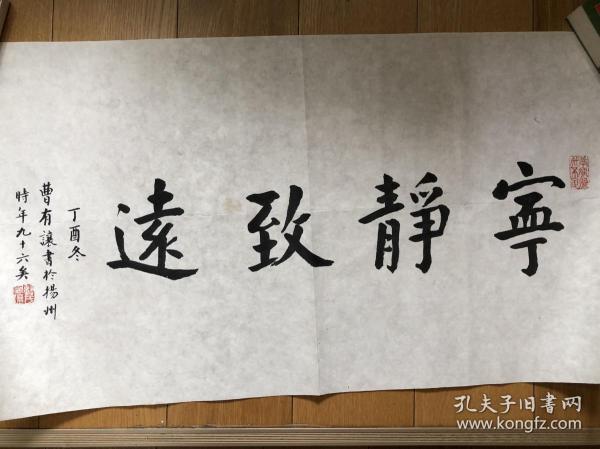 寧靜致遠
丁酉冬
曹有讓書於揚州
時年九十六矣
孔夫子旧書网
www.kongfz.com